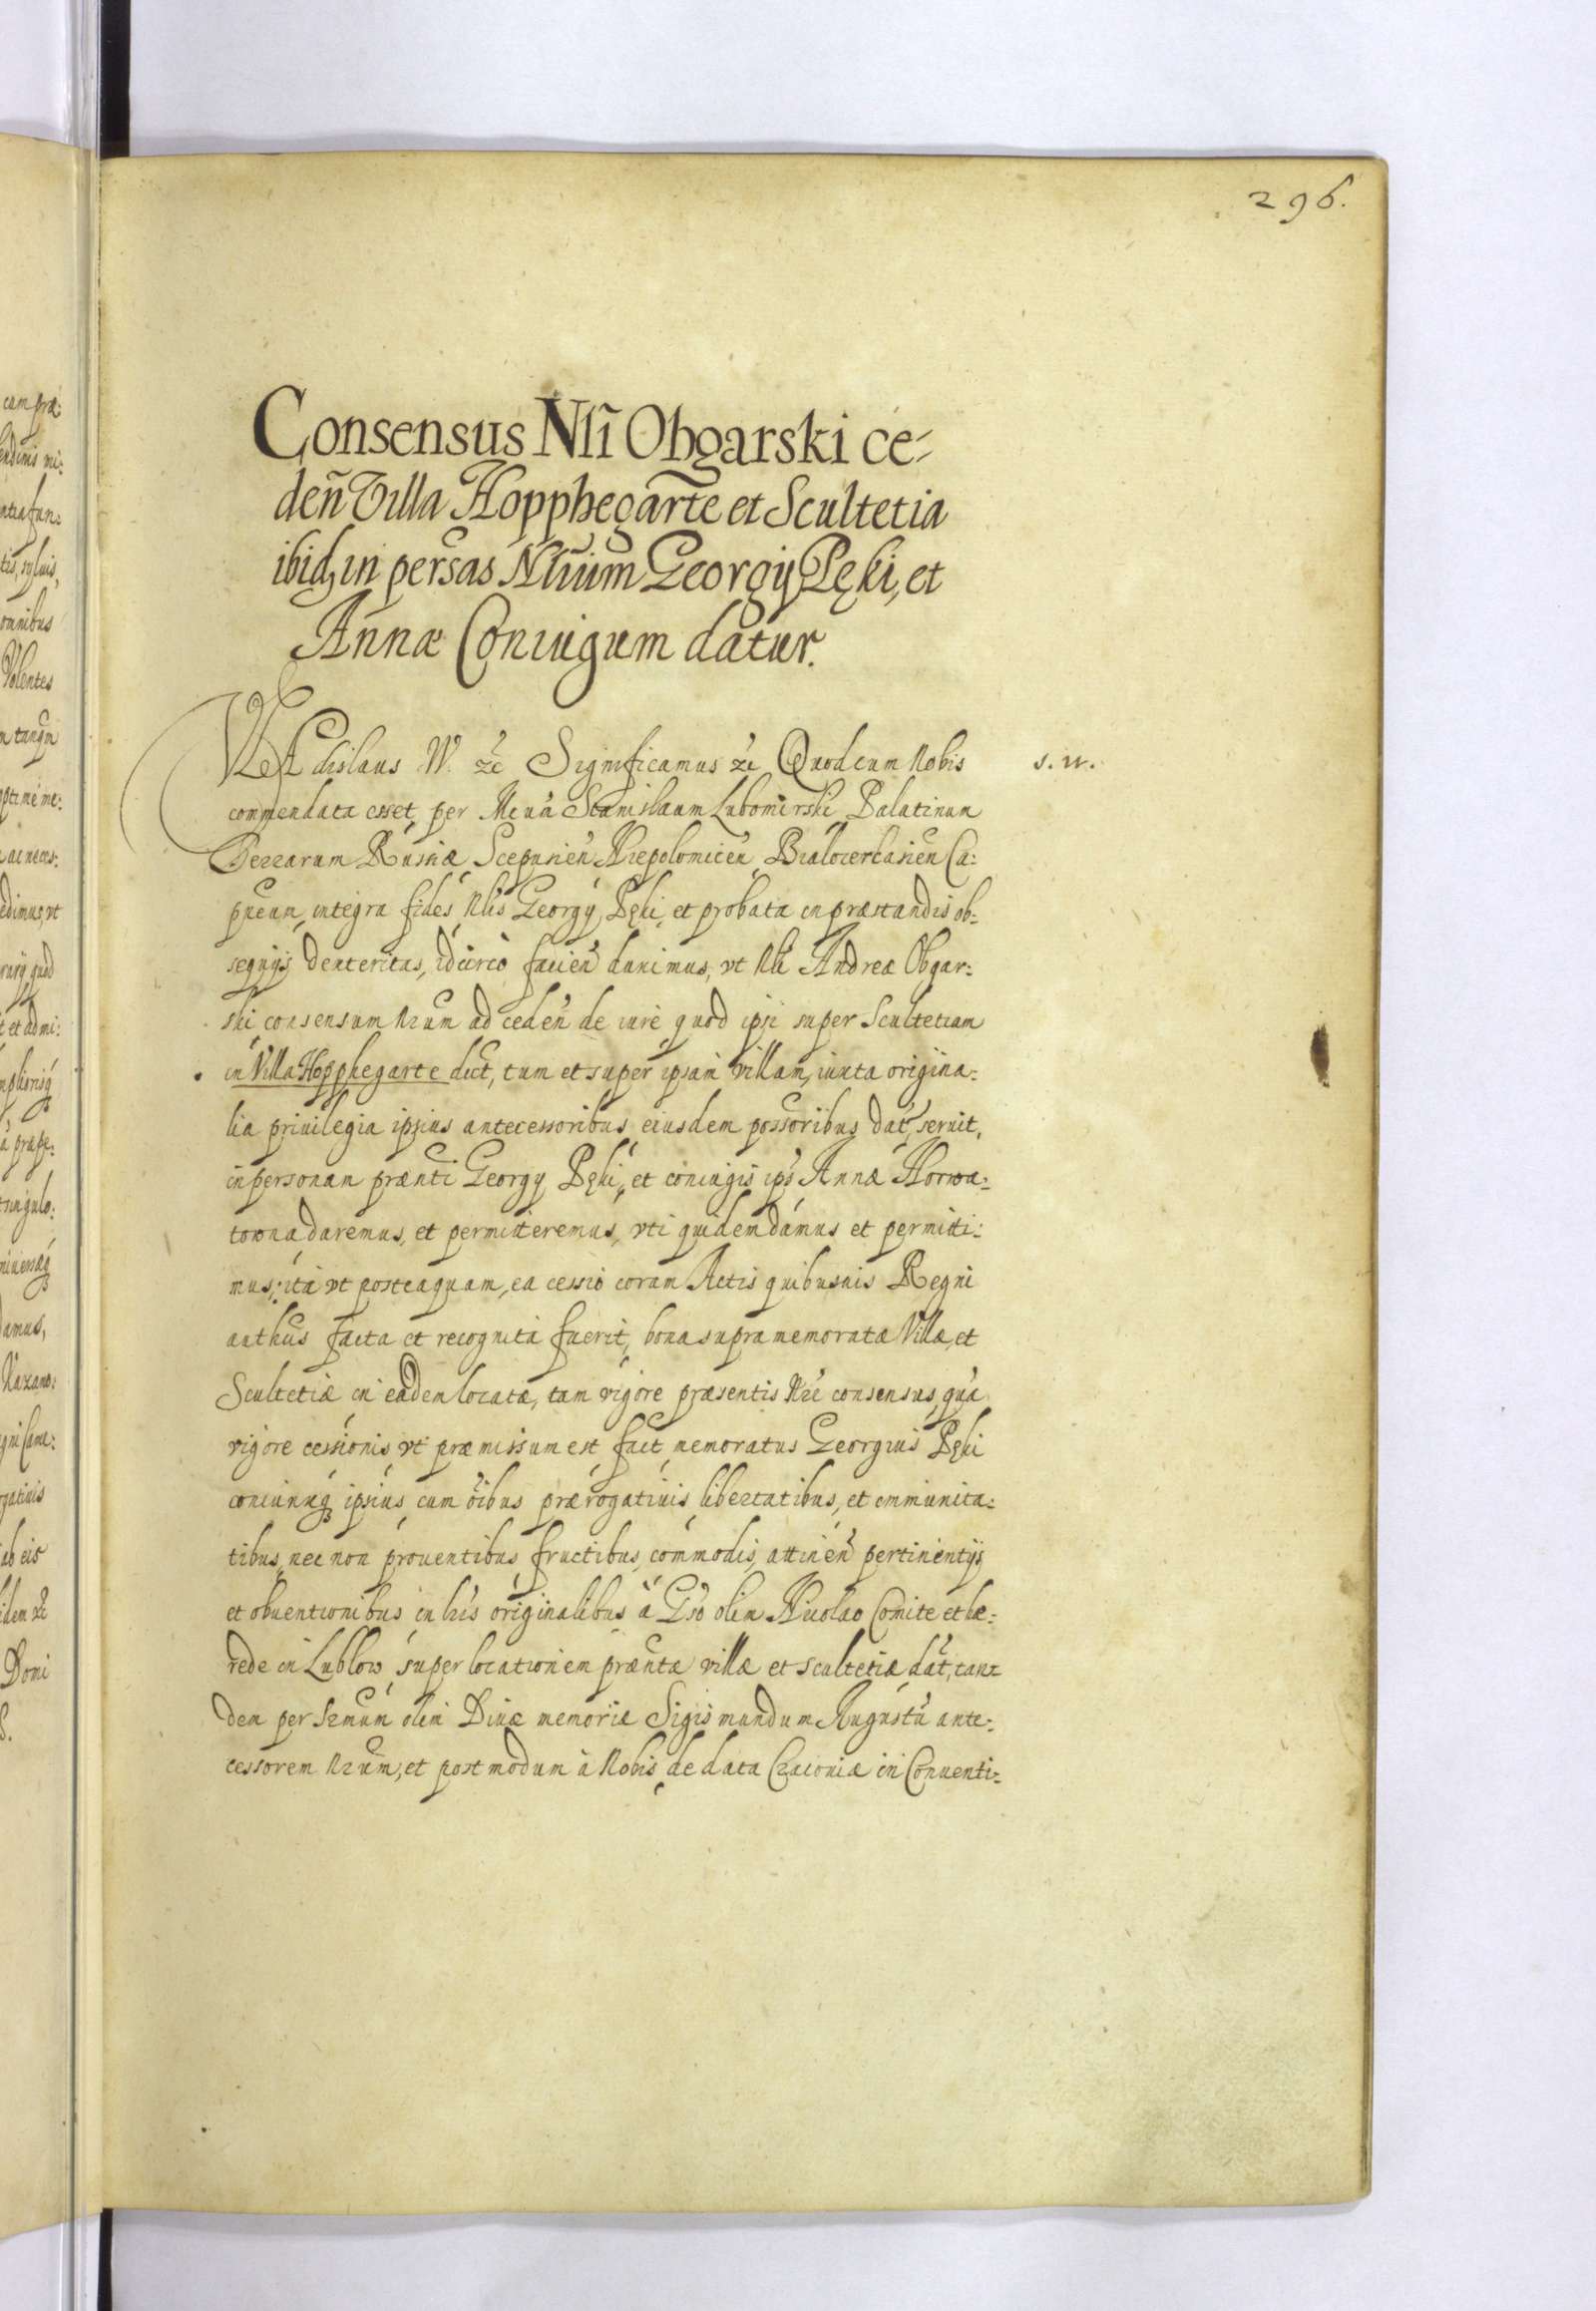 296.
Consensus Nlĩ Obgarski ce=
deñ Villa Hopphegarte et Scultetia
ibidʒ in persas Nlium Georgij Pęki, et
Annæ Coniugum datur.
VLAdislaus IV. zc Significamus zc Quod cum Nobis
s. w.
commendata esset per Mcum Stanislaum Lubomirski Palatinum
Terrarum Russiæ, Scepusien̄ Niepolomicen̄ Bialocerkasien̄ Ca:
pneum, integra fides Nlis Georgij Pęki, et probata in præstandis ob:
sequijs dexteritas, idcirco facien̄ duximus, vt Nli Andreæ Obgar:
ski consensum Nrum ad ceden̄ de iure quod ipsi super Scultetiam
in Villa Hopphegarte dict, tum et super ipsam villam, iuxta origina:
lia priuilegia ipsius antecessoribus eiusdem possoribus dat, seruit,
in personam prænti Georgij Pęki, et coniugis ips Annæ Horwa:
towna daremus, et permitteremus, vti quidem damus et permitti:
mus, ita vt posteaquam, ea cessio coram Actis quibusuis Regni
authcis facta et recognita fuerit, bona supra memoratæ Villæ, et
Scultetiæ in eadem locatæ, tam vigore præsentis Nri consensus, quā
vigore cessionis, vt præmissum est fact, memoratus Georgius Pęki
coniunxq ipsius, cum oĩbus prærogatiuis, libertatibus, et immunita:
tibus, nec non prouentibus, fructibus, commodis, attinen̄ pertinentijs
et obuentionibus in lris originalibus à Gso olim Nicolao Comite et hæ:
rede in Lublow, super locationem præntæ villæ et scultetiæ dat, tan:
dem per Srmum olim Diuæ memoriæ Sigismundum Augustū ante:
cessorem Nrum, et postmodum à Nobis de data Cracouiæ in Conuenti: